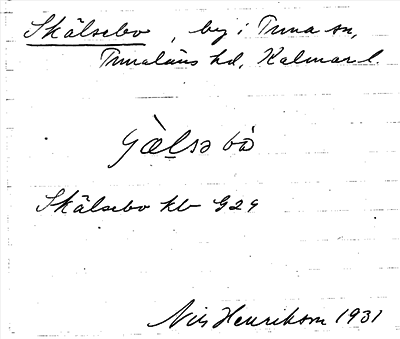 Skälsebo, by i Tuna sn,
Tunaläns hd, Kalmar l.
Skälsebo kb G29
Nils Henrikson 1931